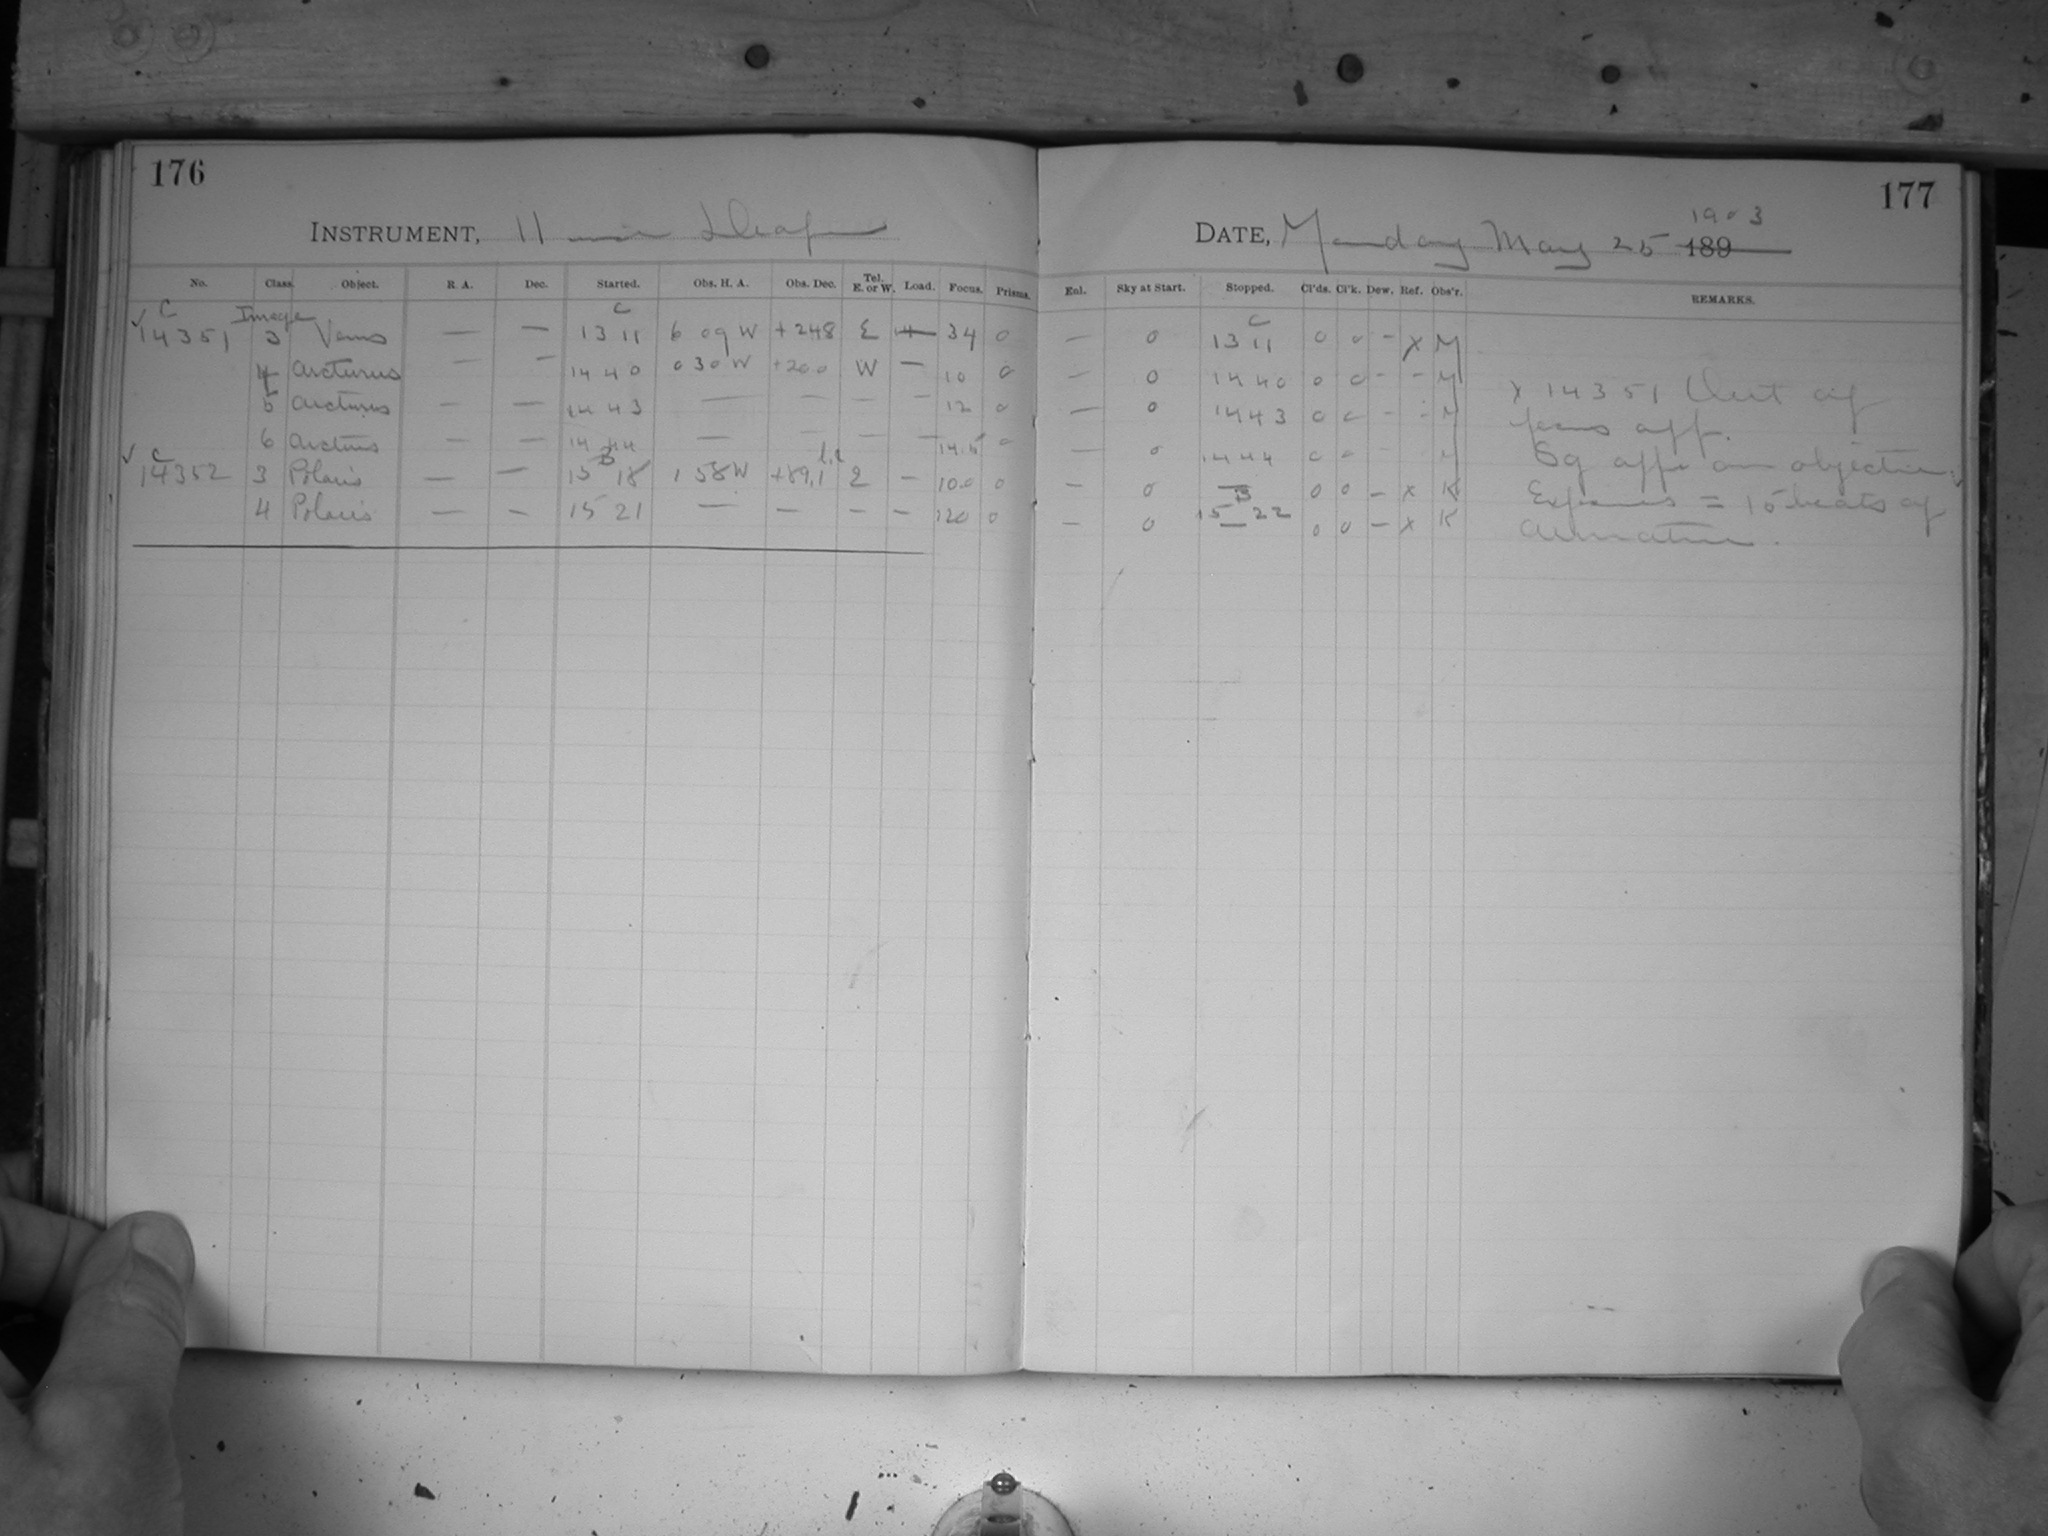 176
INSTRUMENT, 11 inch Draper
No. Class. Object. R. A. Dec. Started. Obs. H. A. Obs. Dec. Tel. E. or W. Load. Focus. Prisms.
C Image C
✓ 14351 3 Venus — — 13 11 6 09 W +24.8 E 34 0
4 Arcturus — — 14 40 0 30 W +20.0 W — 10 0
5 Arcturus — — 14 43 — — — — 12 0
6 Arcturus — — 14 44 — — — — 14.5 0
✓ C B
14352 3 Polaris — — 15 18 1 58 W +89.1 E — 10.0 0
4 Polaris — — 15 21 — — — — 120 0
177
DATE, Monday May 25 1903
189
Eol. Sky at Start. Stopped. Cl'ds. Cl'k. Dew. Ref. Obs'r. REMARKS.
C
— 0 13 11 0 0 – x M
— 0 14 40 0 0 – – M
— 0 14 43 0 0 – – M
— 0 14 44 0 0 M
— 0 — 0 0 – x K
B
— 0 15 22 0 0 – x K
x 14351 Out of
focus app.
69 app on objective
Exposures = 15 beats of
armature.